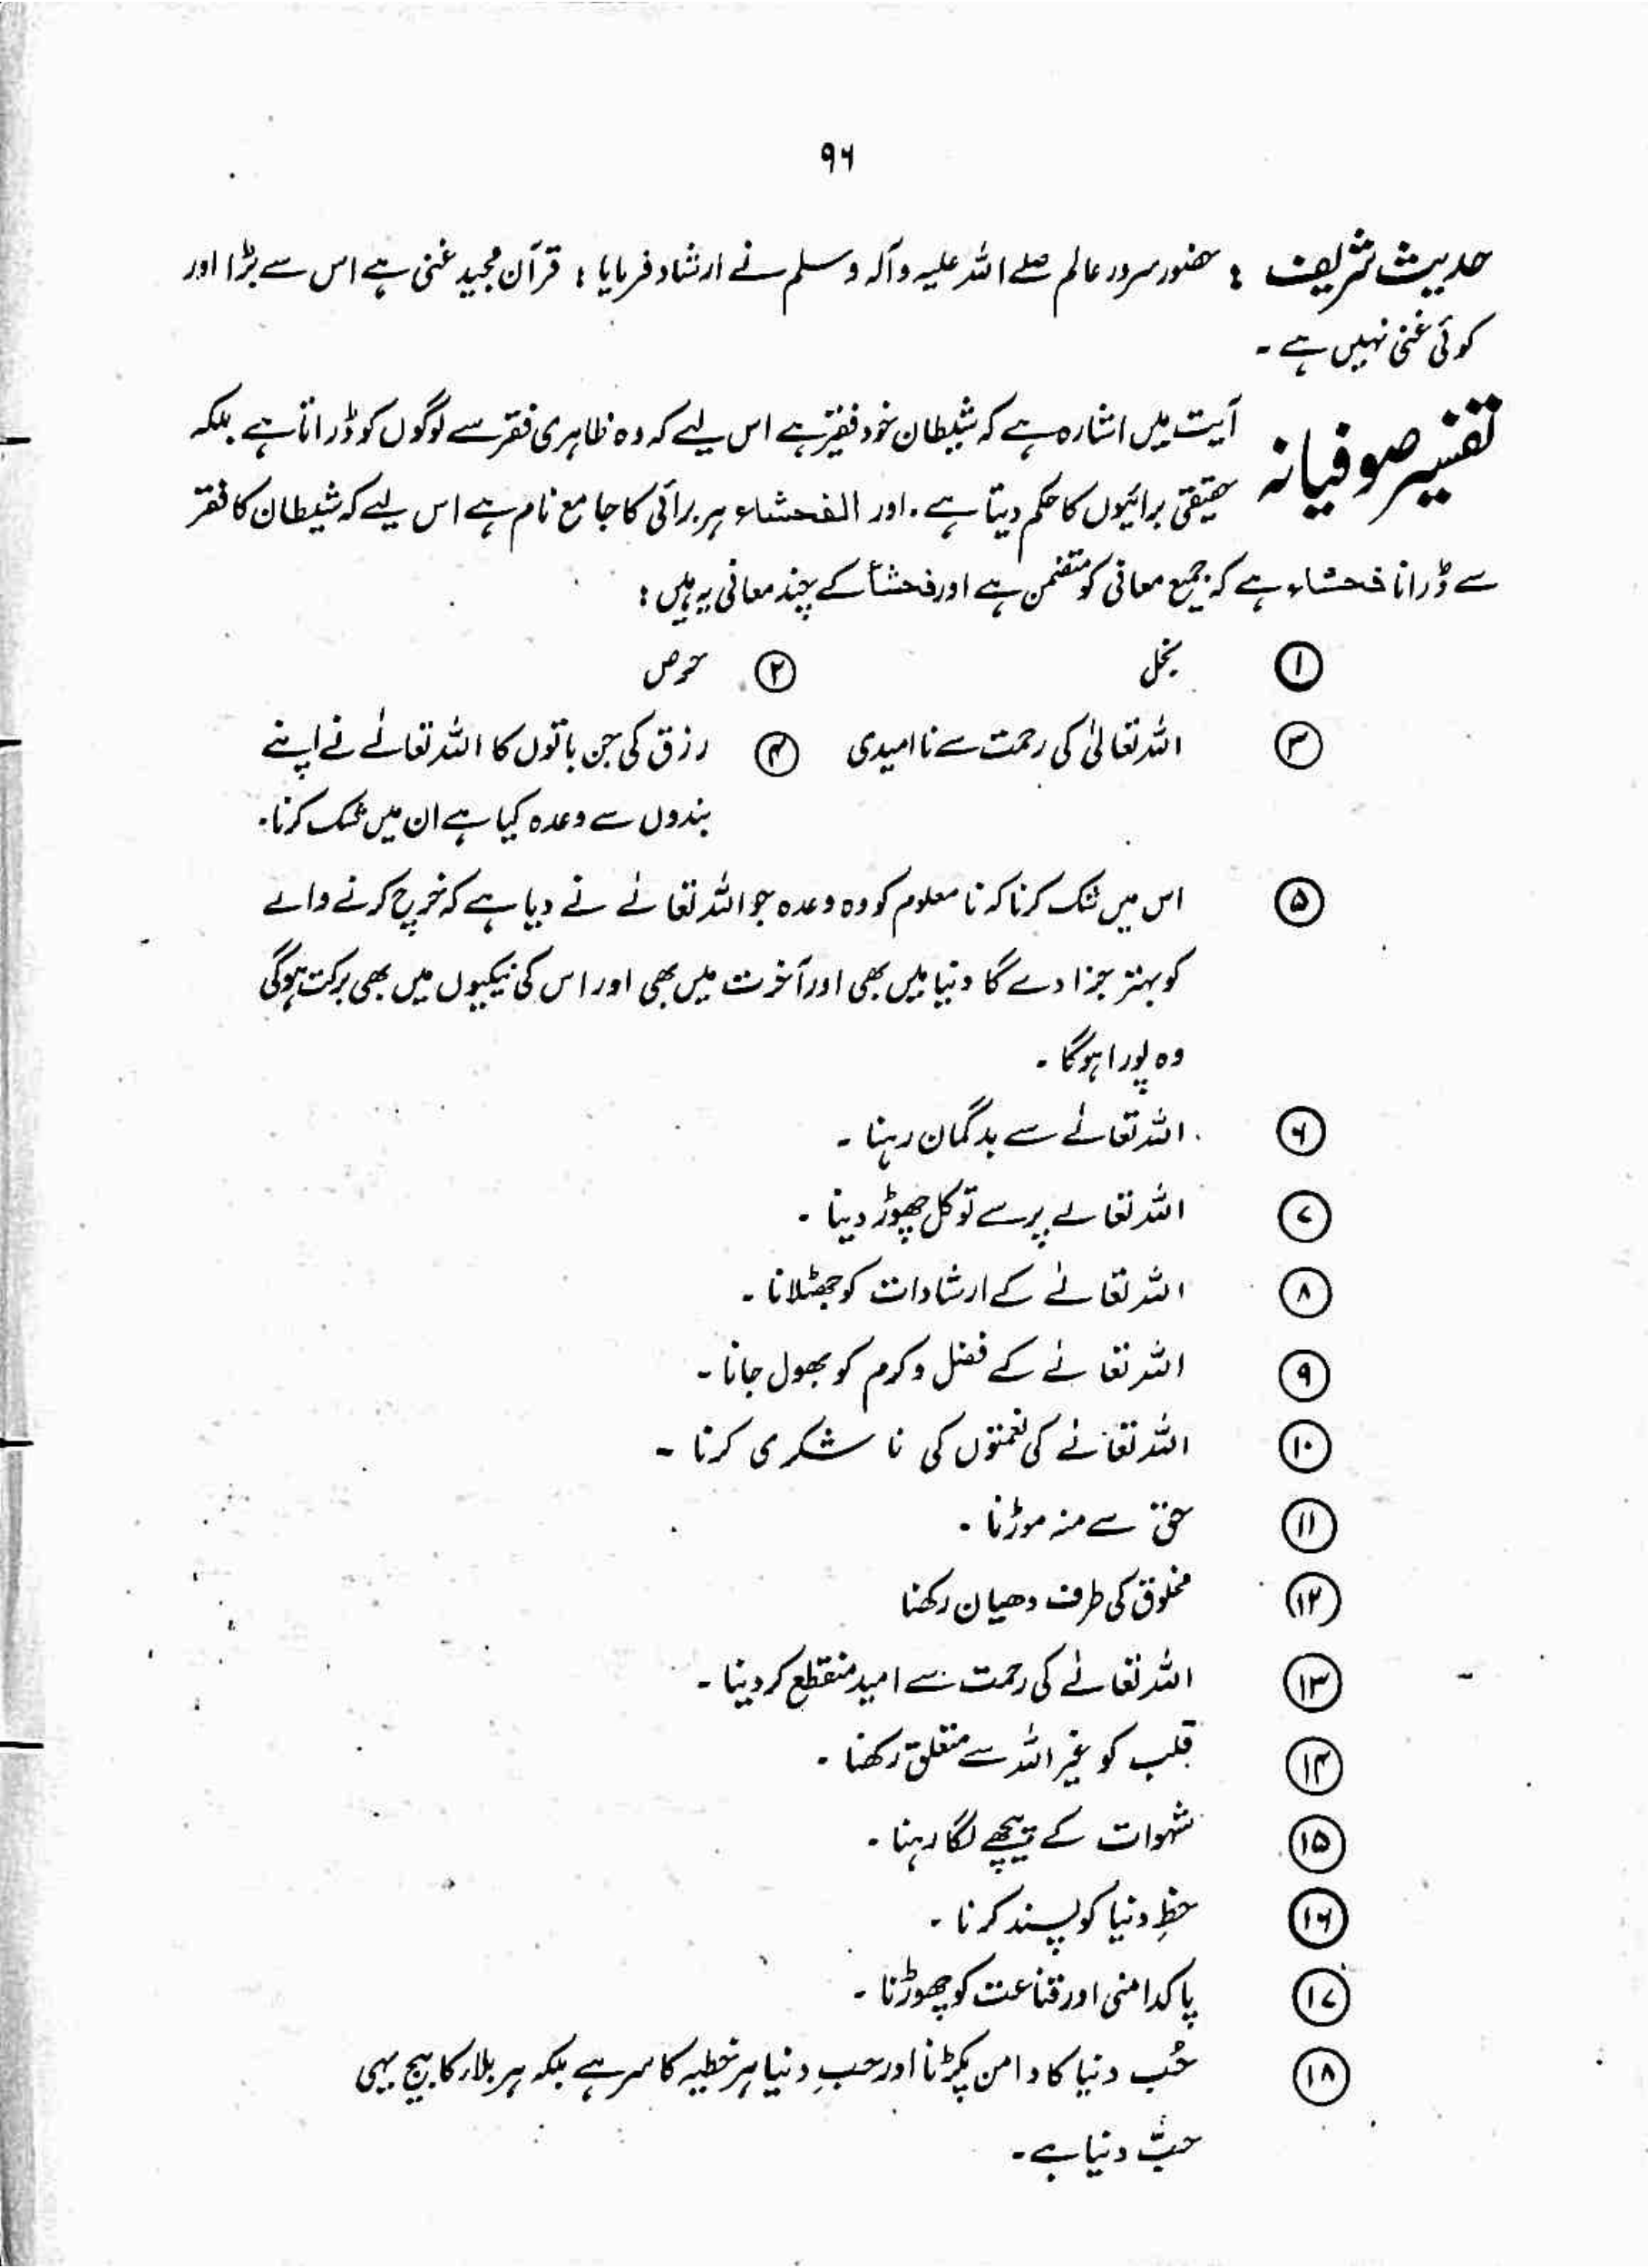 ۹۶
حدیث شریف : حضور سرور عالم صلے اللہ علیہ وآلہ وسلم نے ارشاد فرمایا : قرآن مجید غنی ہے اس سے بڑا اور
کوئی غنی نہیں ہے ۔
تفسیر صوفیانہ آیت میں اشارہ ہے کہ شیطان خود فقیر ہے اس لیے کہ وہ ظاہری فقر سے لوگوں کو ڈراتا ہے بلکہ
حقیقی برائیوں کا حکم دیتا ہے ۔ اور الفحشاء ہر برائی کا جامع نام ہے اس لیے کہ شیطان کا فقر
سے ڈرانا فحشاء ہے کہ جمیع معانی کو متضمن ہے اور فحشأ کے چند معانی یہ ہیں :
① بخل ② حرص
③ اللہ تعالیٰ کی رحمت سے نا امیدی ④ رزق کی جن باتوں کا اللہ تعالےٰ نے اپنے
بندوں سے وعدہ کیا ہے ان میں شک کرنا۔
⑤ اس میں شک کرنا کہ نا معلوم کو وہ وعدہ جو اللہ تعالےٰ نے دیا ہے کہ خرچ کرنے والے
کو بہتر جزا دے گا دنیا میں بھی اور آخرت میں بھی اور اس کی نیکیوں میں بھی برکت ہوگی
وہ پورا ہوگا ۔
⑥ اللہ تعالےٰ سے بدگمان رہنا ۔
⑦ اللہ تعالےٰ پر سے توکل چھوڑ دینا ۔
⑧ اللہ تعالےٰ کے ارشادات کو جھٹلانا ۔
⑨ اللہ تعالےٰ کے فضل و کرم کو بھول جانا ۔
⑩ اللہ تعالےٰ کی نعمتوں کی نا شکری کرنا ۔
⑪ حق سے منہ موڑنا ۔
⑫ مخلوق کی طرف دھیان رکھنا
⑬ اللہ تعالےٰ کی رحمت سے امید منقطع کر دینا ۔
⑭ قلب کو غیر اللہ سے متعلق رکھنا ۔
⑮ شہوات کے پیچھے لگا رہنا ۔
⑯ حظِ دنیا کو پسند کرنا ۔
⑰ پاکدامنی اور قناعت کو چھوڑنا ۔
⑱ حُب دنیا کا دامن پکڑنا اور حبِ دنیا ہر خطیہ کا سر ہے بلکہ ہر بلاء کا بیج یہی
حبِّ دنیا ہے ۔